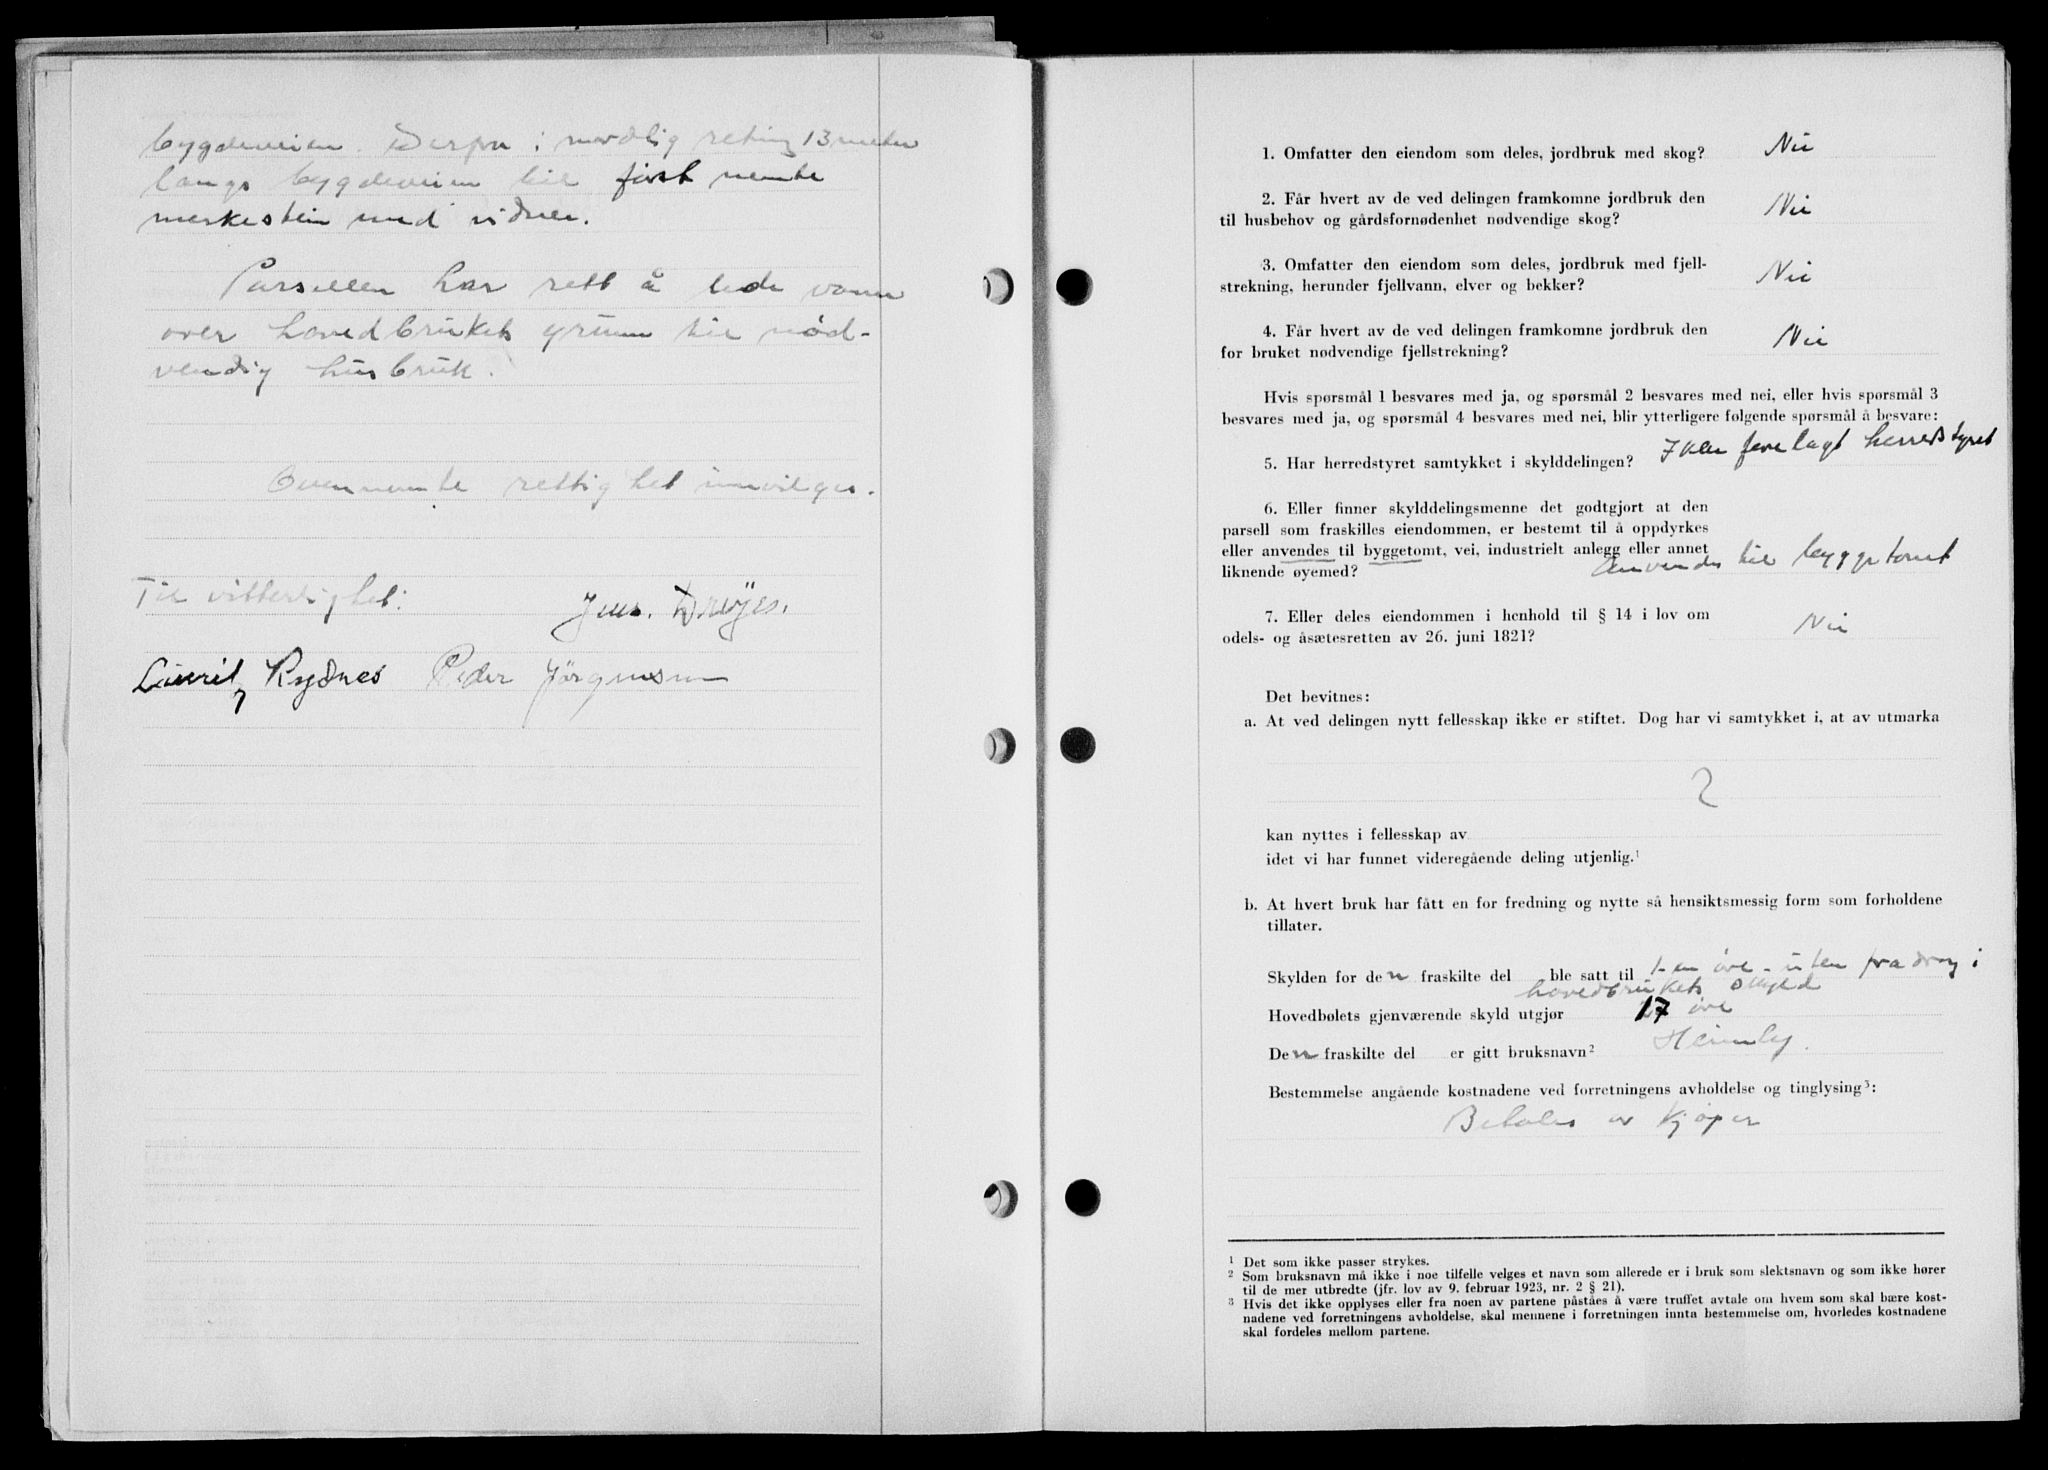 bygdeveien. Derfra i nordlig retning 13 meter
langs bygdeveien til først nemte
merkestein med vidner.
Parsellen har rett å lede vann
over hovedbrukets grunn til nød-
vendig husbruk.
Ovennemte rettighet innvilges.
Til vitterlighet:
Jens.
Lauritz Rydnes Peder Jörgensen
1. Omfatter den eiendom som deles, jordbruk med skog? Nei
2. Får hvert av de ved delingen framkomne jordbruk den
til husbehov og gårdsfornødenhet nødvendige skog? Nei
3. Omfatter den eiendom som deles, jordbruk med fjell-
strekning, herunder fjellvann, elver og bekker? Nei
4. Får hvert av de ved delingen framkomne jordbruk den
for bruket nødvendige fjellstrekning? Nei
Hvis spørsmål 1 besvares med ja, og spørsmål 2 besvares med nei, eller hvis spørsmål 3
besvares med ja, og spørsmål 4 besvares med nei, blir ytterligere følgende spørsmål å besvare:
5. Har herredstyret samtykket i skylddelingen? Ikke forelagt herredstyret
6. Eller finner skylddelingsmenne det godtgjort at den
parsell som fraskilles eiendommen, er bestemt til å oppdyrkes
eller anvendes til byggetomt, vei, industrielt anlegg eller annet
liknende øyemed? Anvendes til byggetomt
7. Eller deles eiendommen i henhold til § 14 i lov om
odels- og åsætesretten av 26. juni 1821? Nei
Det bevitnes:
a. At ved delingen nytt fellesskap ikke er stiftet. Dog har vi samtykket i, at av utmarka
kan nyttes i fellesskap av
idet vi har funnet videregående deling utjenlig.¹
b. At hvert bruk har fått en for fredning og nytte så hensiktsmessig form som forholdene
tillater.
Skylden for den fraskilte del ble satt til 1 - en øre - uten fradrag i
hovedbrukets skyld
Hovedbølets gjenværende skyld utgjør 17 øre
Den fraskilte del er gitt bruksnavn² Heimly.
Bestemmelse angående kostnadene ved forretningens avholdelse og tinglysing³:
Betales av kjøper
¹ Det som ikke passer strykes.
² Som bruksnavn må ikke i noe tilfelle velges et navn som allerede er i bruk som slektsnavn og som ikke hører
til de mer utbredte (jfr. lov av 9. februar 1923, nr. 2 § 21).
³ Hvis det ikke opplyses eller fra noen av partene påståes å være truffet avtale om hvem som skal bære kost-
nadene ved forretningens avholdelse, skal mennene i forretningen innta bestemmelse om, hvorledes kostnadene
skal fordeles mellom partene.